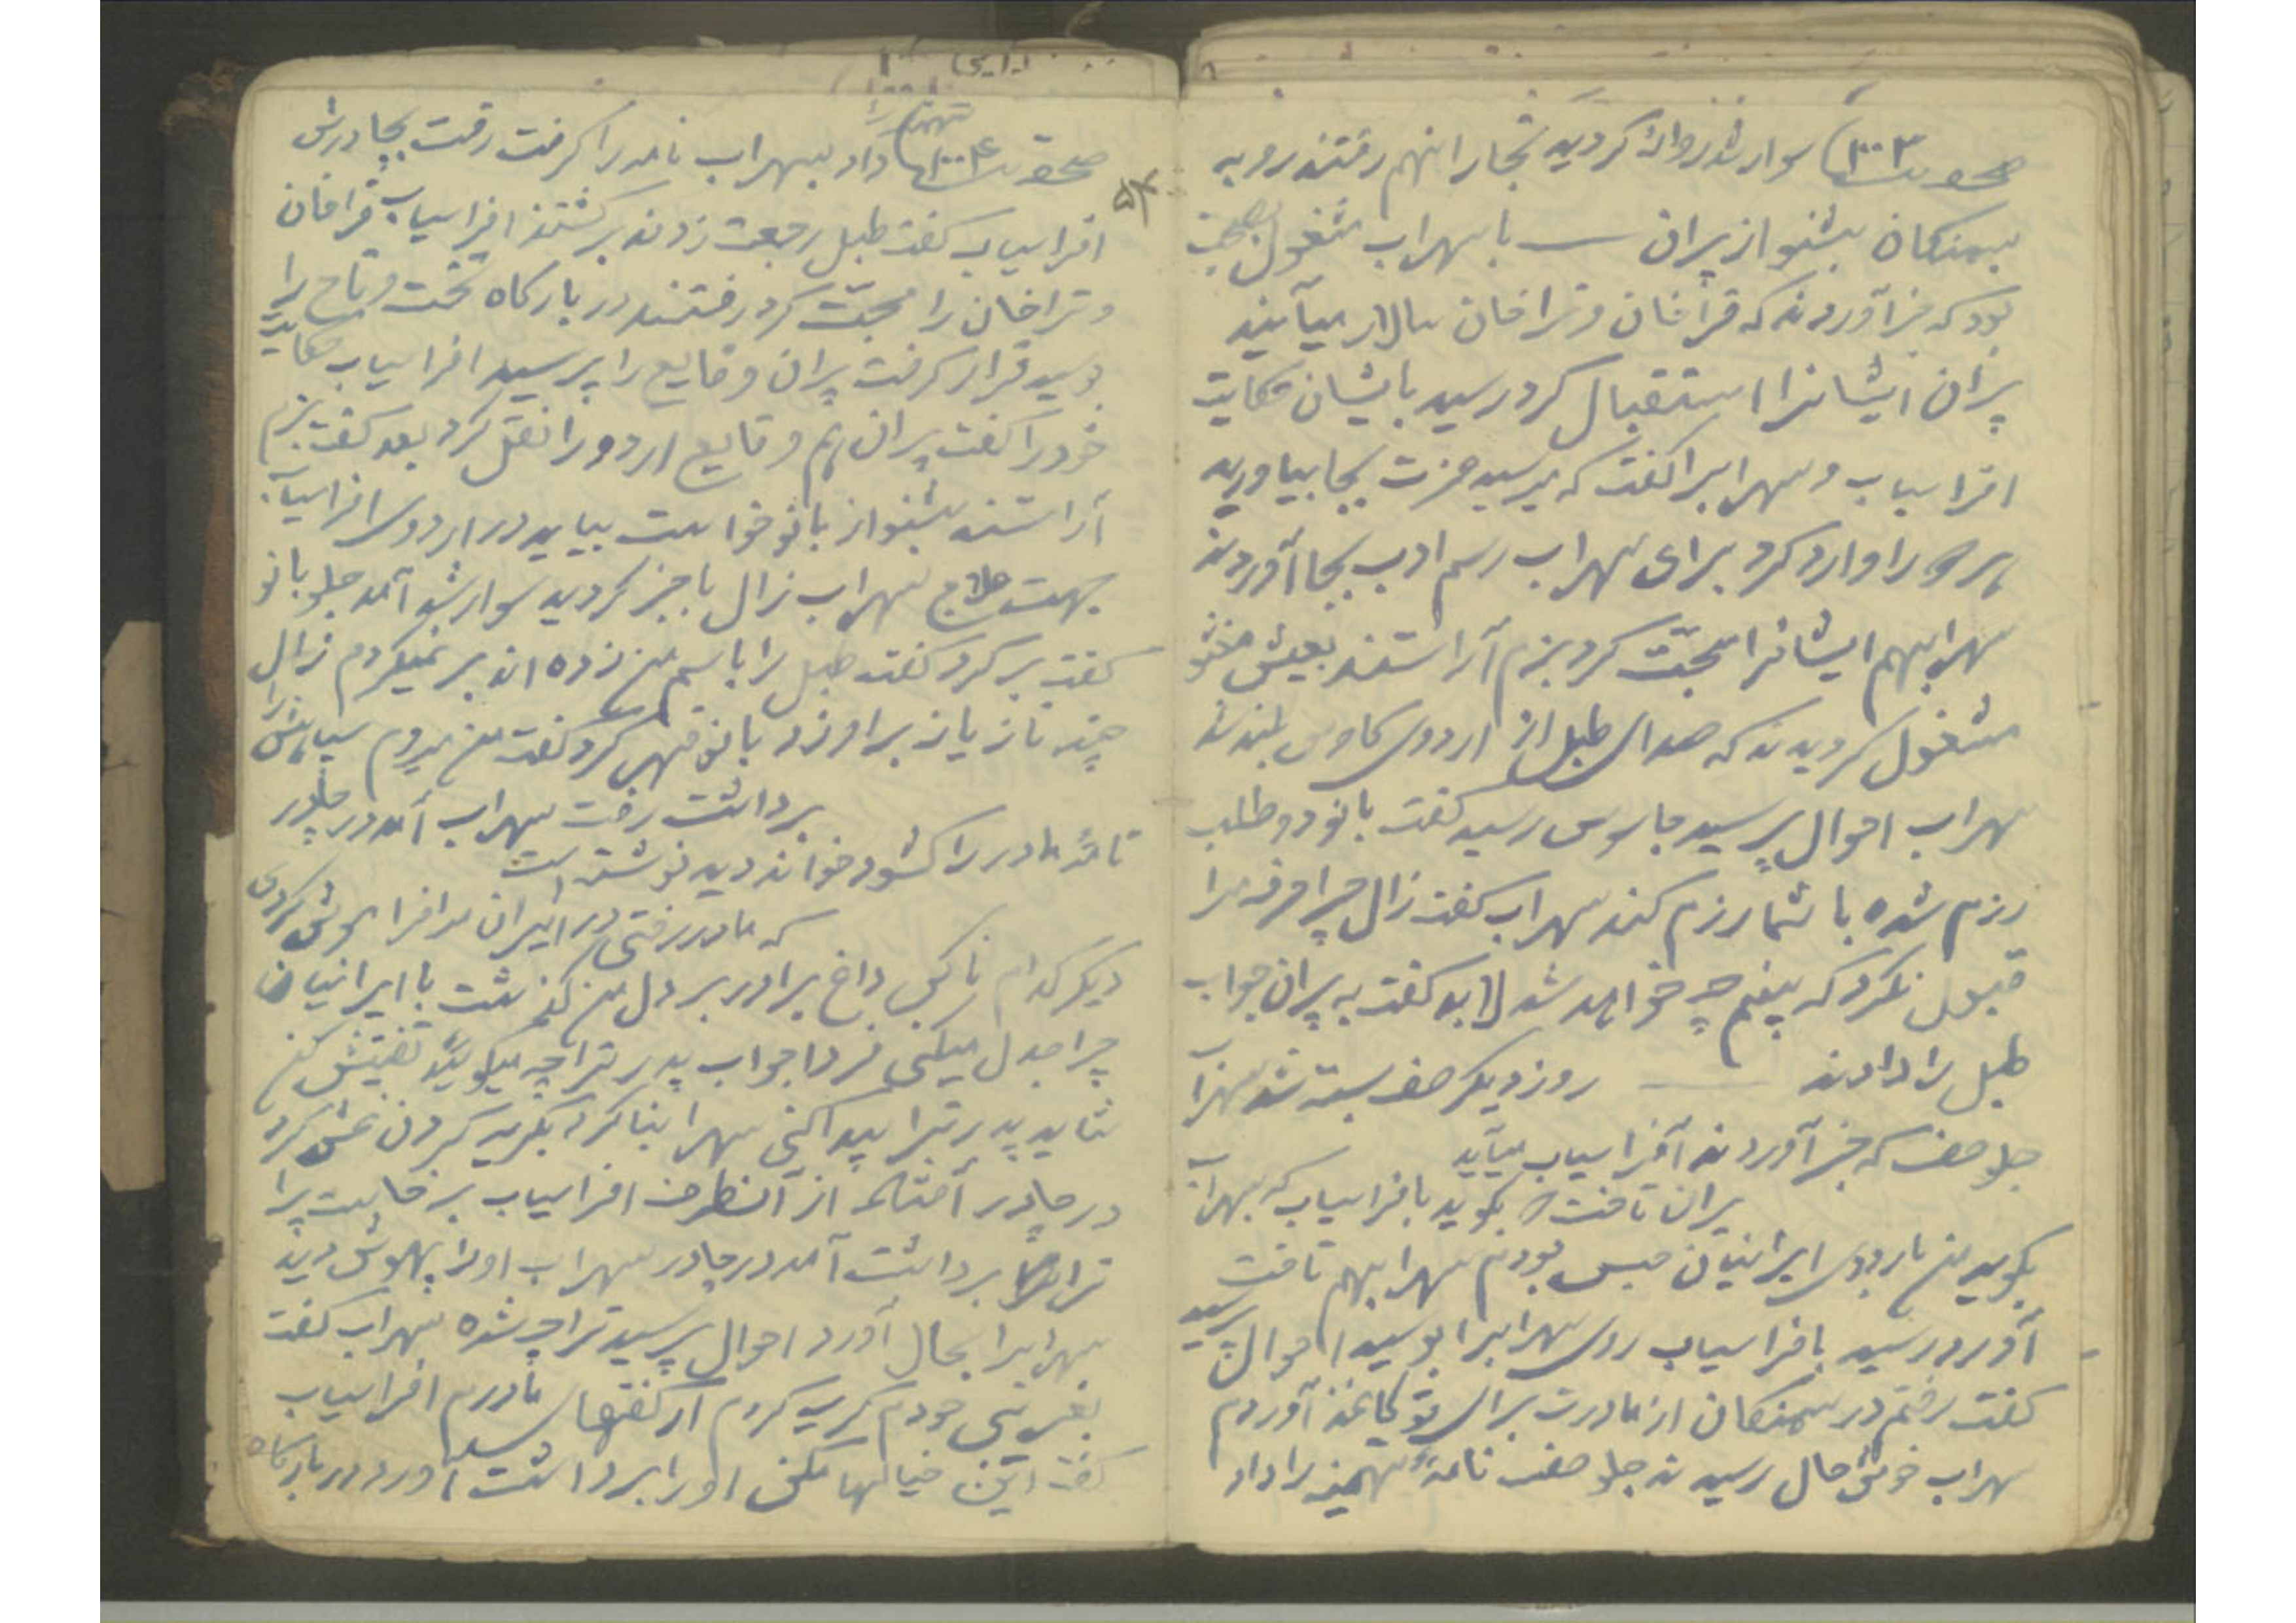 صحوت ۱۰۰۳ سوار شد روانه گردید تجار انهم رفتند رو به
سمنکان بشنو از پیران — با سهراب مشغول صحبت
بود که خبر آوردند که قراخان و تراخان سالار میآیند
پیران ایشانرا استقبال کرد رسید بایشان حکایت
افراسیاب و سهرابرا گفت که میرسید عزت بجا بیاورید
هر دو را وارد کرد برای سهراب رسم ادب بجا آوردند
سهرابهم ایشانرا محبّت کرد بزم آراستند بعیش
مشغول گردیدند که صدای طبل از اردوی کاوس بلند شد
سهراب احوال پرسید جاسوس رسید گفت بانو دو طلب
رزم شده با شما رزم کند سهراب گفت زال چرا حرف مرا
قبول نکرد که ببینم چه خواهد شد لابد گفت به پیران جواب
طبل را دادند — روز دیگر صف بسته شد سهراب
جلو صف که خبر آوردند افراسیاب میآید
پیران تاخت که بگوید بافراسیاب که بسهراب
بگوید من باردوی ایرانیان حبس بودم سهرابهم تاخت
آورد رسید بافراسیاب روی سهرابرا بوسید احوال پرسید
گفت رفتم در سمنکان از مادرت برای تو کاغذ آوردم
سهراب خوش حال رسیدند جلو صف نامهٔ تهمینه را داد
۵۲
صحوت ۱۰۰۴ داد بسهراب نامه را گرفت رفت بچادرش
افراسیاب گفت طبل رجعت زدند برگشتند افراسیاب قراخان
و تراخان را محبّت کرد رفتند در بارگاه تخت و تاج را
دید قرار گرفت پیران وقایع را پرسید افراسیاب حکایت
خود را گفت پیران هم وقایع اردو را نقل کرد بعد گفت بزم
آراستند بشنو از بانو خواست بیاید در اردوی افراسیاب
بهت علاج سهراب زال باخبر گردید سوار شد آمد جلو بانو
گفت برگرد گفت طبل را باسم من زده اند بر نمیگردم زال
چند تازیانه براو زد بانو قهر کرد گفت من میروم سپاهش را
برداشت رفت سهراب آمد در چادر
نامهٔ مادر را گشود خواند دید نوشته است
که مادر رفتی در ایران مرا فراموش کردی
دیگر کدام ناکی داغ برادر بر دل من گذشت با ایرانیان
چرا جدل میکنی فردا جواب پدر ترا چه میگوئید تفتیش کن
شاید پدر ترا پیدا کنی سهراب بنا کرد بگریه کردن غش کرد
در چادر افتاد از آنطرف افراسیاب برخاست
برداشت آمد در چادر سهراب اورا بهوش دید
سهرابرا بحال آورد احوال پرسید ترا چه شده سهراب گفت
بغریبی خودم گریه کردم از گفتهای مادرم افراسیاب
گفت این خیالها مکن اورا برداشت آورد در بارگاه